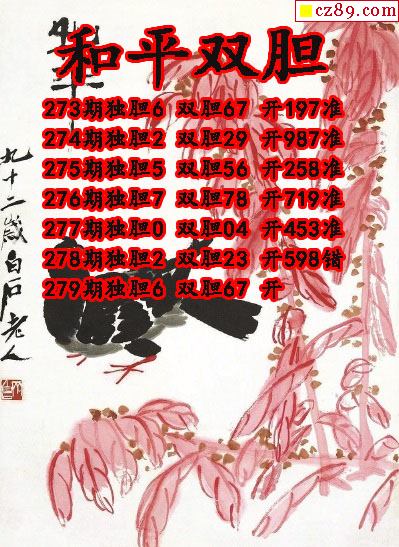 cz89.com
和平双胆
273期独胆6 双胆67 开197准
274期独胆2 双胆29 开987准
275期独胆5 双胆56 开258准
276期独胆7 双胆78 开719准
277期独胆0 双胆04 开453准
278期独胆2 双胆23 开598错
279期独胆6 双胆67 开
九十二岁白石老人